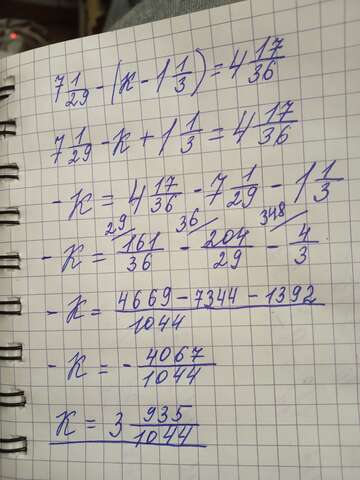 7 1/29 - (к - 1 1/3) = 4 17/36
7 1/29 - к + 1 1/3 = 4 17/36
- к = 4 17/36 - 7 1/29 - 1 1/3
29 36 348
- к = 161/36 - 204/29 - 4/3
- к = 4669 - 7344 - 1392 / 1044
- к = - 4067/1044
к = 3 935/1044